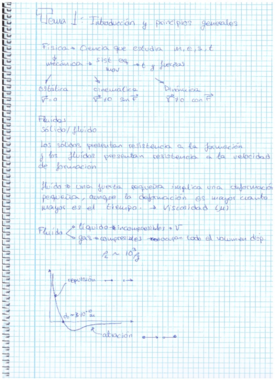 Tema 1: Introducción y principios generales
Física → Ciencia que estudia
mecánica → t y fuerzas
Estática cinemática Dinámica
Fluidos
Sólido/fluido
Los sólidos presentan resistencia a la formación
y los fluidos presentan resistencia a la velocidad
de formación
fluido → una fuerza pequeña implica una deformación
pequeña, aunque la deformación es mayor cuanto
mayor es el tiempo. → Viscosidad (μ)
Fluido líquido → incompresibles → V
gas → compresibles todo el volumen disp.
repulsión
atracción